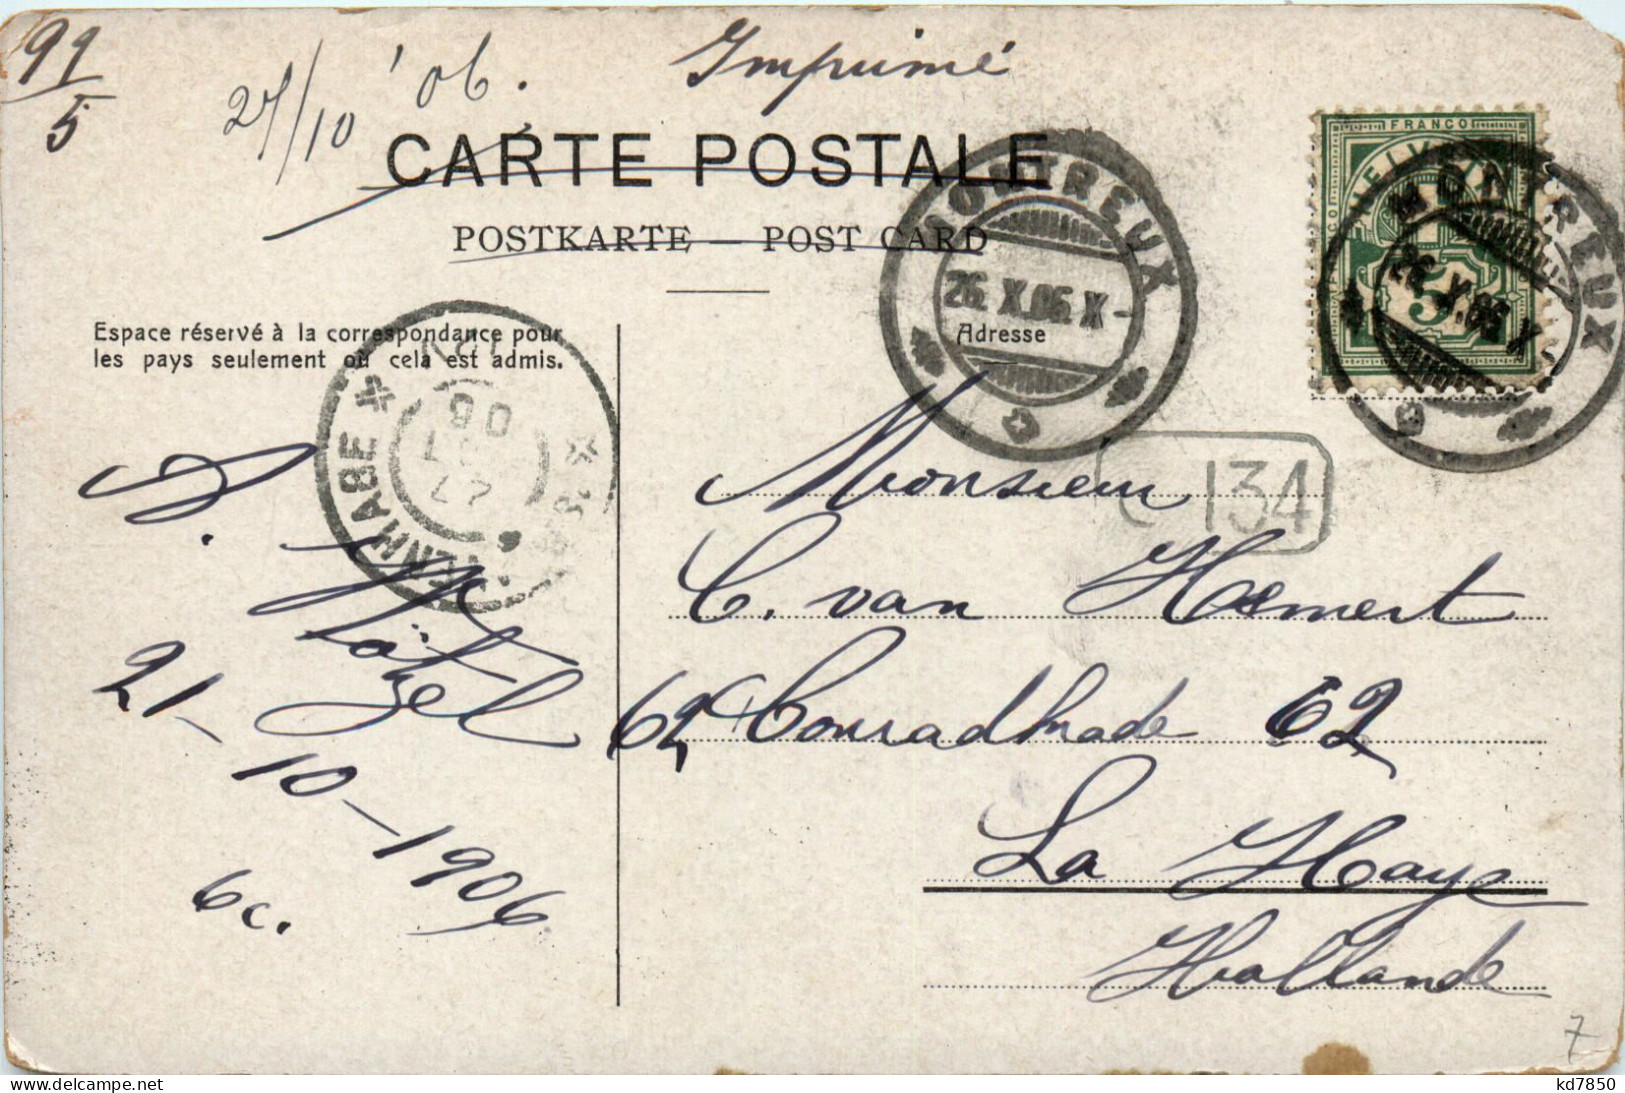 99/5
27/10 '06.
Imprimé
CARTE POSTALE
POSTKARTE — POST CARD
FRANCO
HELVETIA
5
MONTREUX
26.X.06.X-
MONTREUX
26.X.06.X
Espace réservé à la correspondance pour
les pays seulement où cela est admis.
Adresse
06
27
134
Monsieur
C. van Hemert
62 Conradkade 62
La Haye
Hollande
21-10-1906
6c.
7
kd7850